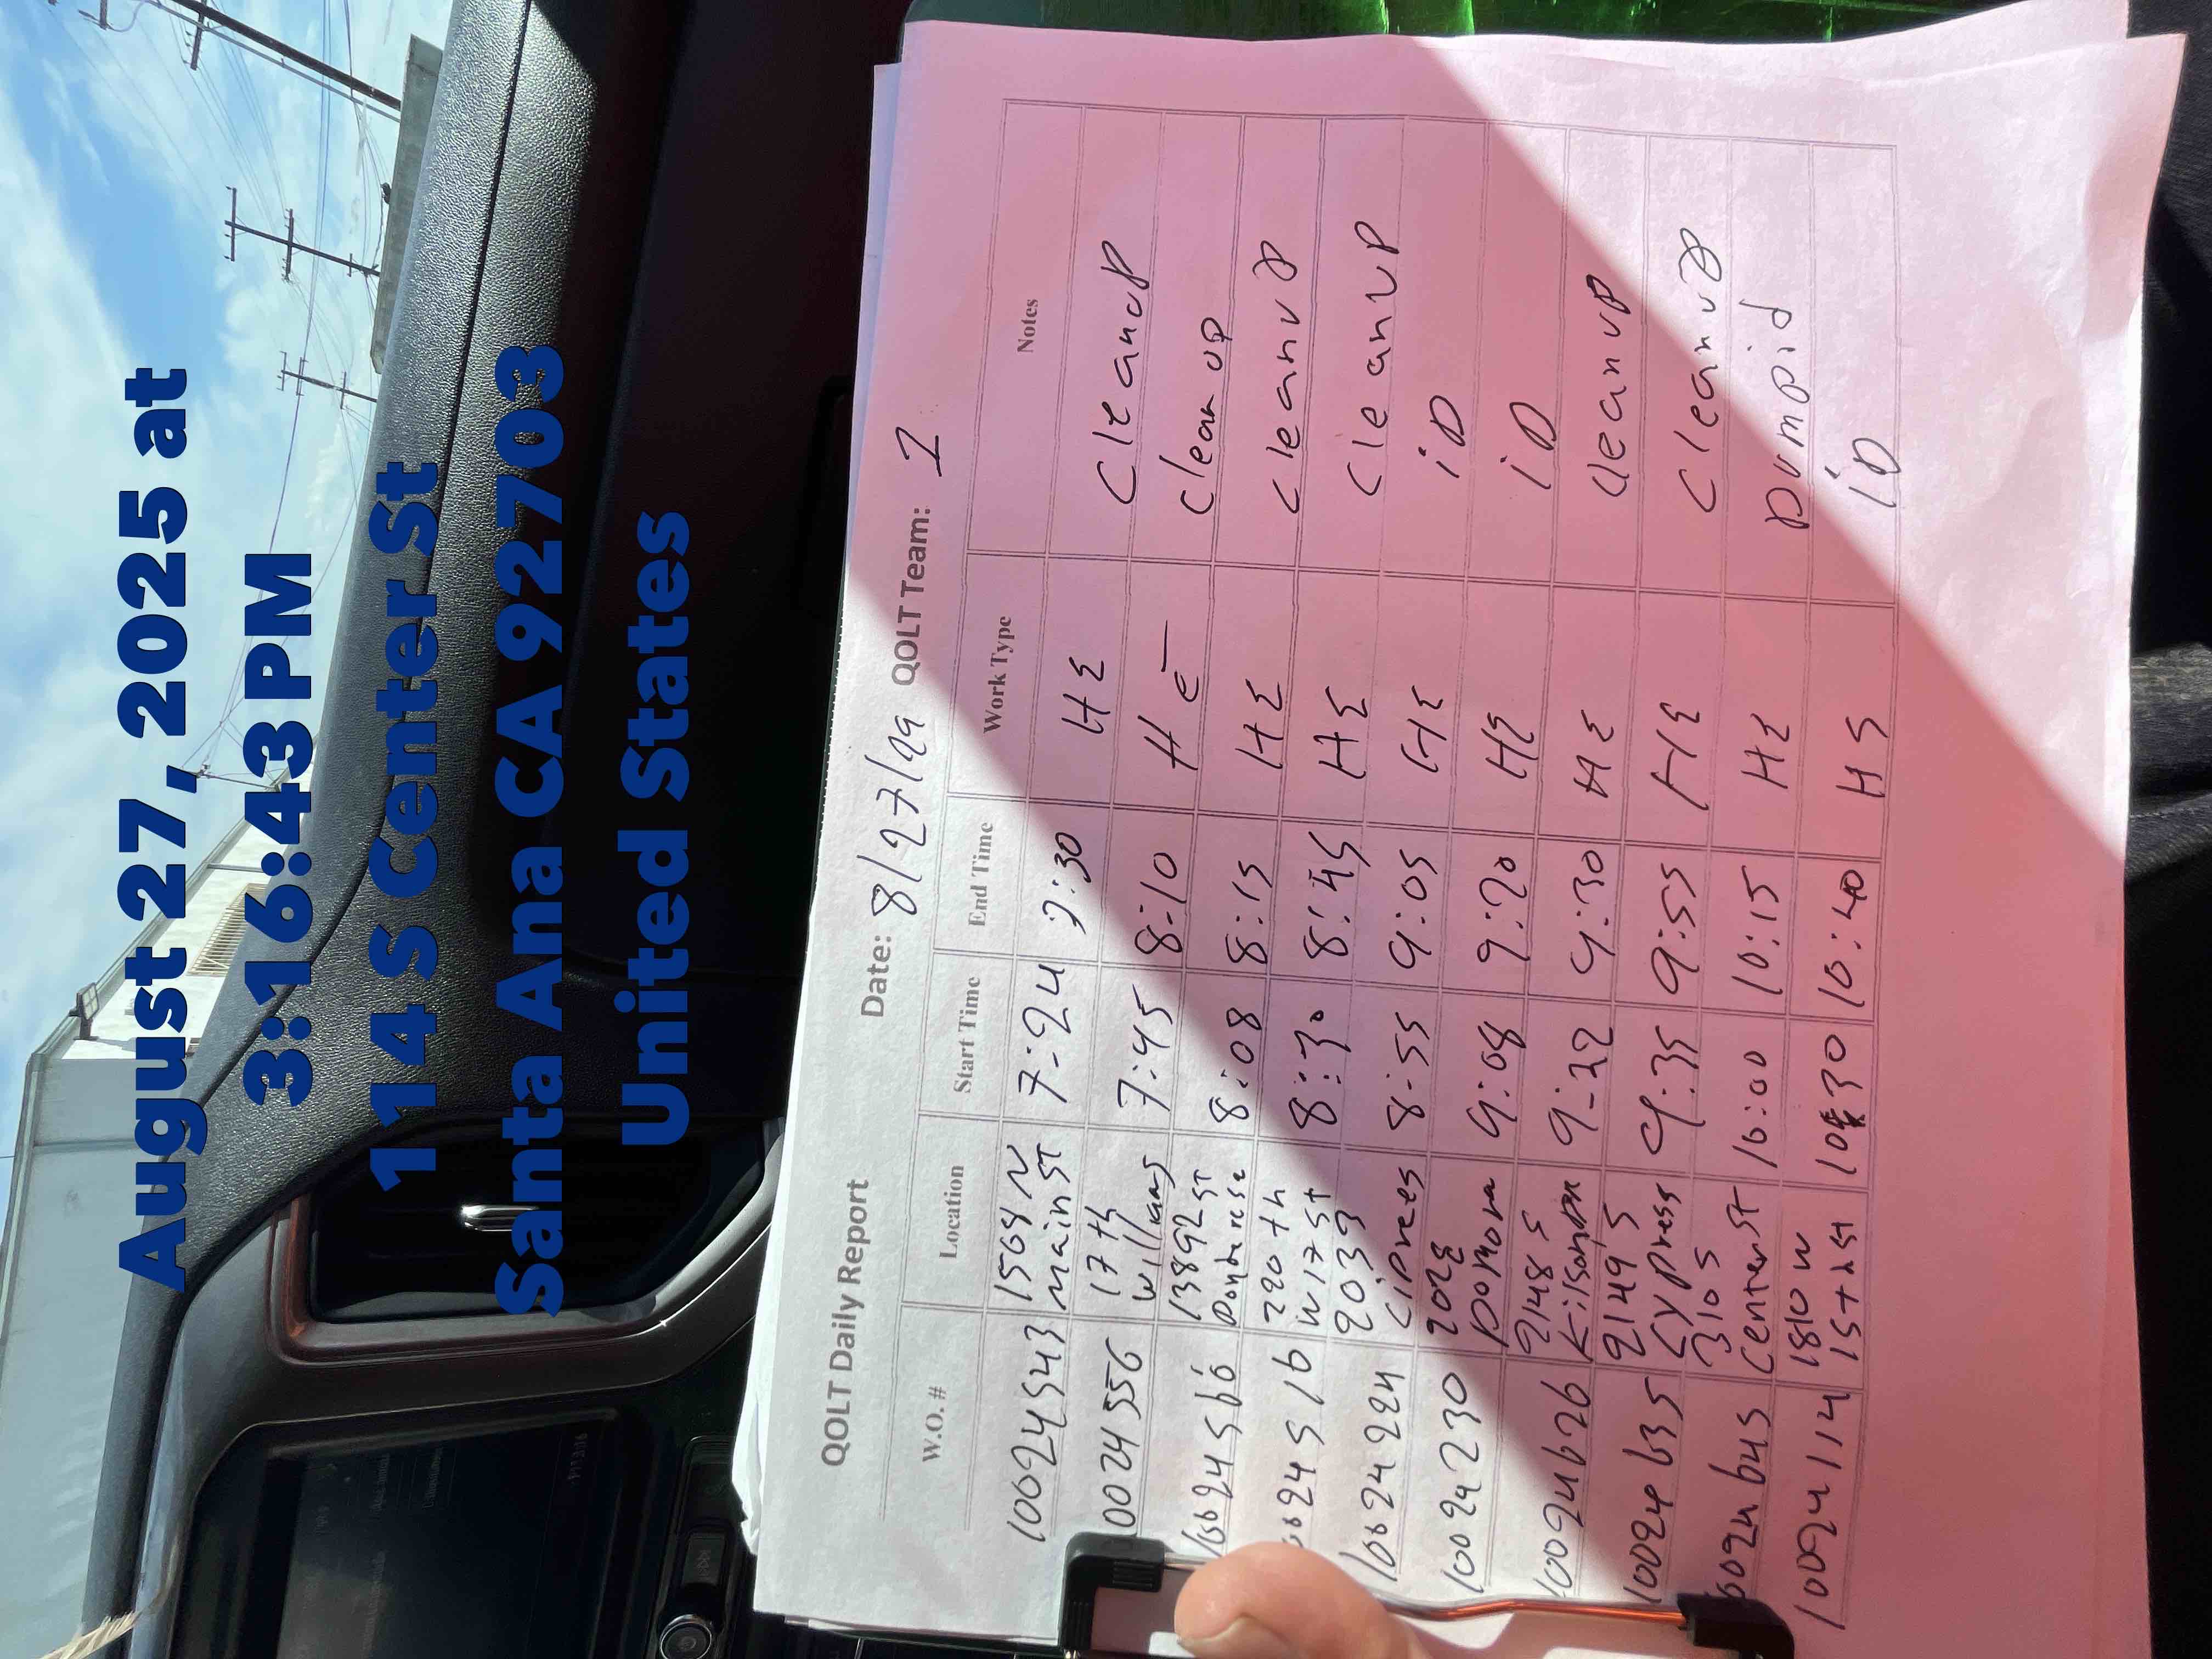 August 27, 2025 at
3:16:43 PM
114 S Center St
Santa Ana CA 92703
United States
QOLT Daily Report Date: 8/27/ QOLT Team: 1
W.O. # Location Start Time End Time Work Type Notes
10024543 1504 N main st 7:24 7:30 HE cleanup
0024556 17th 7:45 8:10 He clean up
13892 st 8:08 8:15 HE cleanup
024516 w 17 st 8:30 8:45 HE cleanup
10024224 2039 cipres 8:55 9:05 HE iD
10024230 202 E pomona 9:08 9:20 HE iD
2148 S 9:22 9:30 HE cleanup
10024635 2149 S cypress 9:35 9:55 HE cleanup
310 S center st 10:00 10:15 HE
10024114 1810 w 10:30 10:40 HS iD